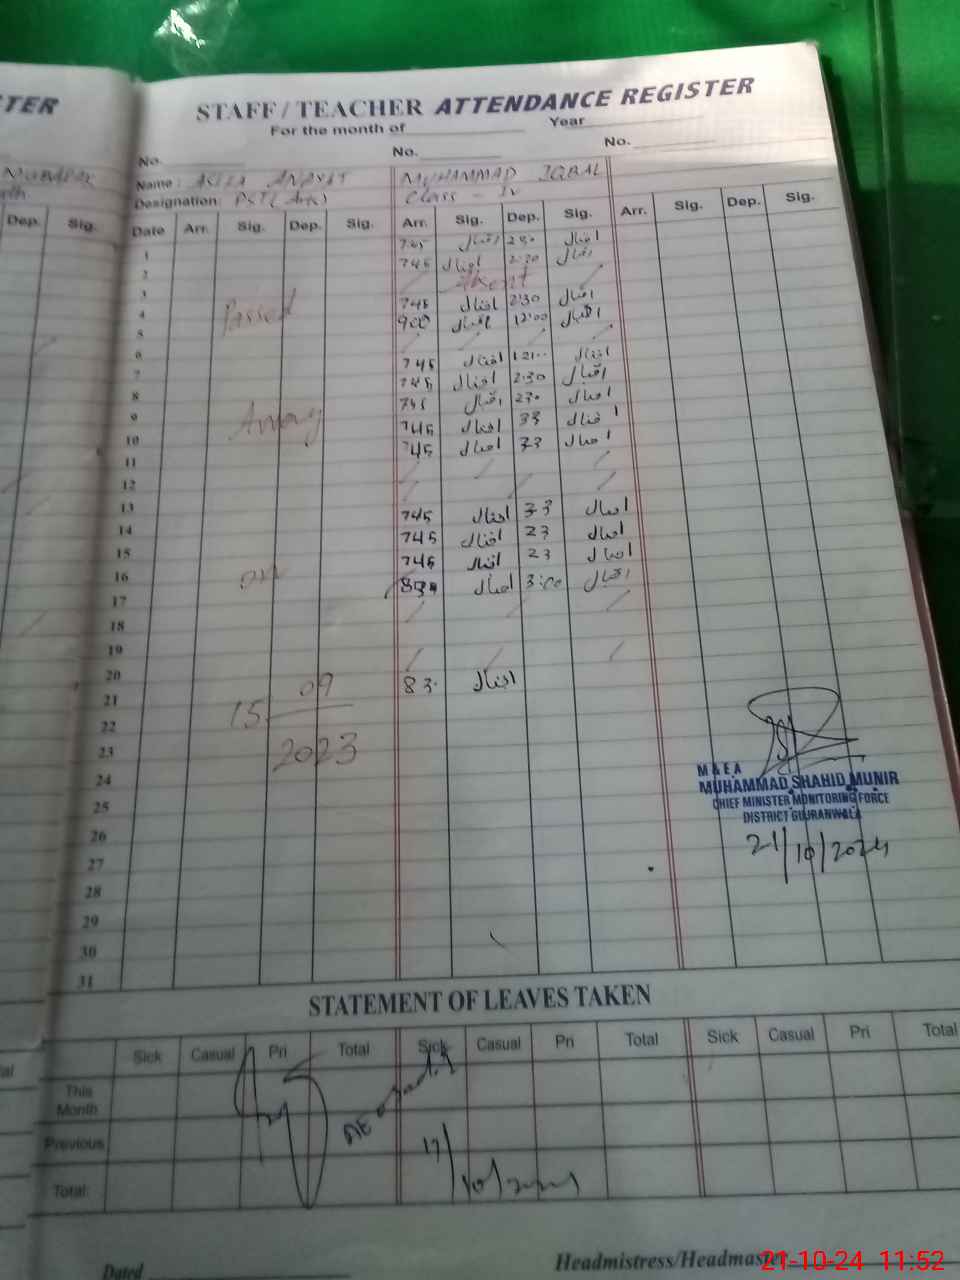 TER
STAFF / TEACHER ATTENDANCE REGISTER
For the month of Year
No. No. No.
Name: MUHAMMAD IQBAL
Designation: PST Class - IV
Dep. Sig. Date Arr. Sig. Dep. Sig. Arr. Sig. Dep. Sig. Arr. Sig. Dep. Sig.
1 745 اقبال 2:30 اقبال
2 745 اقبال 2:30 اقبال
3
4 Passed 745 اقبال 2:30 اقبال
5 900 اقبال 12:00 اقبال
6
7 745 اقبال اقبال
8 745 اقبال 2:30 اقبال
9 Away 745 اقبال 230 اقبال
10 745 اقبال اقبال
11 745 اقبال اقبال
12
13
14 745 اقبال اقبال
15 745 اقبال 23 اقبال
16 on 745 اقبال 23 اقبال
17 اقبال 3:00 اقبال
18
19
20
21 83 اقبال
22 15 09
23 2023
24
25
26
27
28
29
30
31
M & E A
MUHAMMAD SHAHID MUNIR
CHIEF MINISTER MONITORING FORCE
DISTRICT GUJRANWALA
21/10/2024
STATEMENT OF LEAVES TAKEN
Sick Casual Pri Total Sick Casual Pri Total Sick Casual Pri Total
This
Month
Previous
Total:
Dated Headmistress/Headmaster
21-10-24 11:52